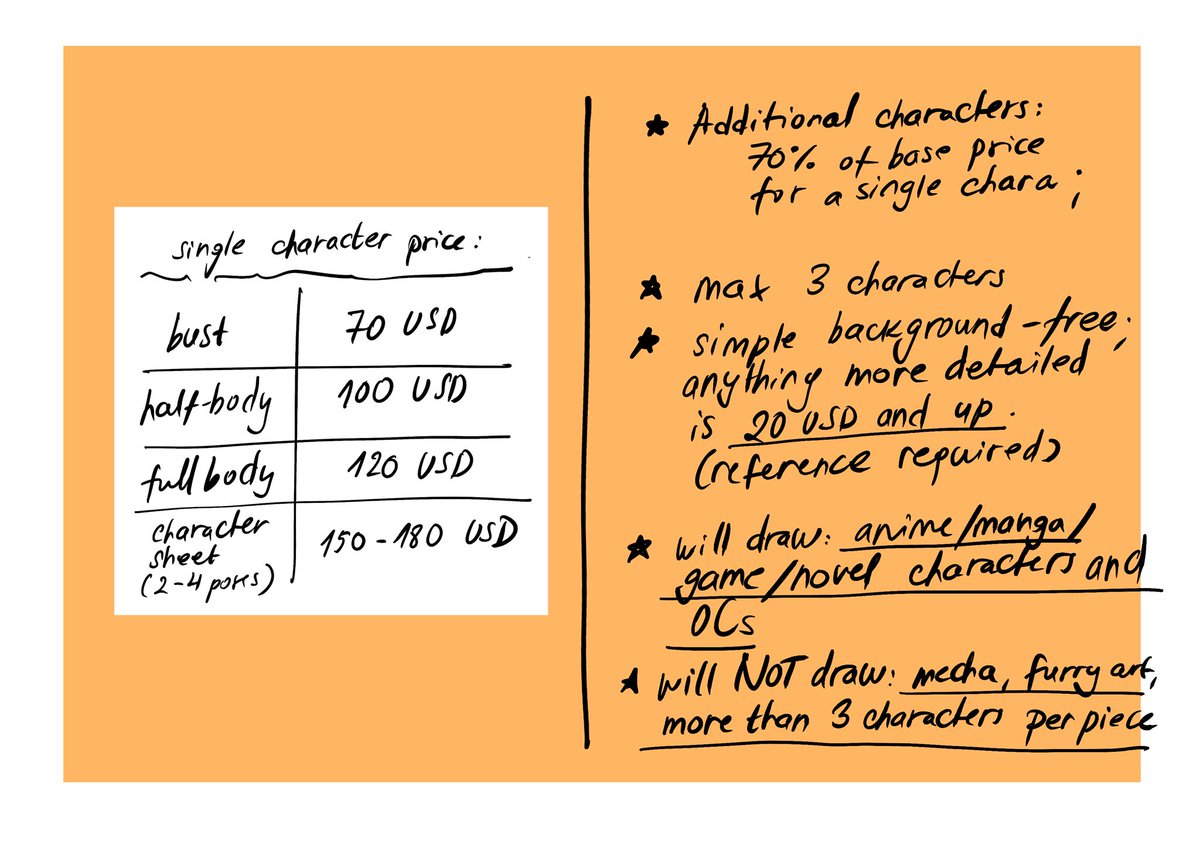 single character price:
bust 70 USD
half-body 100 USD
full body 120 USD
character
sheet 150-180 USD
(2-4 poses)
★ Additional characters:
70% of base price
for a single chara;
★ max 3 characters
★ simple background-free;
anything more detailed
is 20 USD and up.
(reference required)
★ will draw: anime/manga/
game/novel characters and
OCs
★ will NOT draw: mecha, furry art,
more than 3 characters per piece